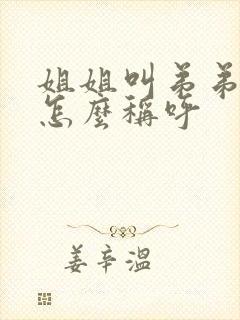 姐姐叫弟弟
怎麼稱呼
姜辛溫